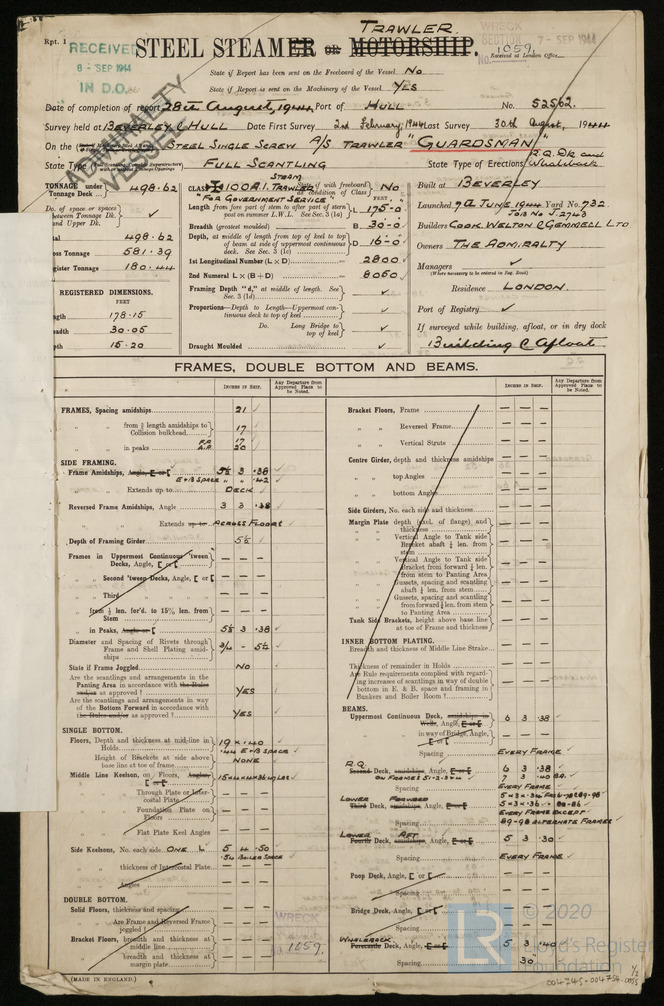 Rpt. 1
RECEIVED
8 - SEP 1944
IN D.O.
ADMIRALTY
VESSEL
TRAWLER
STEEL STEAMER OR MOTORSHIP.
WRECK
SECTION
7 - SEP 1944
No. 1059
Received at London Office
State if Report has been sent on the Freeboard of the Vessel No
State if Report is sent on the Machinery of the Vessel YES
Date of completion of report 28th August, 1944 Port of HULL No. 52562.
Survey held at BEVERLEY & HULL Date First Survey 2nd February, 1944 Last Survey 30th August, 1944
On the STEEL SINGLE SCREW A/S TRAWLER "GUARDSMAN"
State Type FULL SCANTLING State Type of Erections R.Q. Dk and Whaleback
TONNAGE under Tonnage Deck ... 498.62
Do. of space or spaces between Tonnage Dk. and Upper Dk. ✓
Total 498.62
Gross Tonnage 581.39
Register Tonnage 180.44
REGISTERED DIMENSIONS.
FEET
Length 178.15
Breadth 30.05
Depth 15.20
CLASS ✠ 100A1. STEAM TRAWLER if with freeboard, as condition of Class No
"FOR GOVERNMENT SERVICE"
FEET
Length from fore part of stem to after part of stern post on summer L.W.L. See Sec. 3 (1a) L 175-0
Breadth (greatest moulded) B 30-0
Depth, at middle of length from top of keel to top of beam at side of uppermost continuous deck. See Sec. 3 (1c) D 16-0
1st Longitudinal Number (L × D) 2800
2nd Numeral L × (B + D) 8050
Framing Depth "d," at middle of length. See Sec. 3 (1d) ✓
Proportions—Depth to Length—Uppermost continuous deck to top of keel ✓
Do. Long Bridge to top of keel ✓
Draught Moulded ✓
Built at BEVERLEY
Launched 7th JUNE 1944 Yard No. 732.
JOB No J.2743
Builders COOK, WELTON & GEMMELL LTD
Owners THE ADMIRALTY
Managers ✓
(Where necessary to be entered in Reg. Book)
Residence LONDON.
Port of Registry ✓
If surveyed while building, afloat, or in dry dock
Building & Afloat
FRAMES, DOUBLE BOTTOM AND BEAMS.
INCHES IN SHIP.
Any Departure from Approved Plans to be Noted.
FRAMES, Spacing amidships 21 ✓
" " from ⅗ length amidships to Collision bulkhead 17 ✓
" " in peaks F.P. 17 A.P. 20
SIDE FRAMING.
Frame Amidships, Angle, E or [ 5½ 3 .38
E & B SPACE " " .42
" " Extends up to DECK
Reversed Frame Amidships, Angle 3 3 .38
" " Extends up to ACROSS FLOORS
Depth of Framing Girder 5½
Frames in Uppermost Continuous 'Tween Decks, Angle, [ or [ — — —
" Second 'tween Decks, Angle, [ or [ — — —
" Third " — — —
" from ⅕ len. for'd. to 15% len. from Stem — — —
" in Peaks, Angle or [ 5½ 3 .38
Diameter and Spacing of Rivets through Frame and Shell Plating amidships 3/4 - 5½
State if Frame Joggled NO
Are the scantlings and arrangements in the Panting Area in accordance with the Rules and/or as approved? YES
Are the scantlings and arrangements in way of the Bottom Forward in accordance with the Rules and/or as approved? YES
SINGLE BOTTOM.
Floors, Depth and thickness at mid-line in Holds 19 × .40
.44 E & B SPACE
Height of Brackets at side above base line at toe of frame NONE
Middle Line Keelson, on Floors, Angles, [ or [
" " Through Plate or Intercostal Plate
" " Foundation Plate on Floors
" " Flat Plate Keel Angles
Side Keelsons, No. each side ONE L 5 4 .50
.54 BOILER SPACE
" " thickness of Intercostal Plate
" " Angles
DOUBLE BOTTOM.
Solid Floors, thickness and spacing
" " Are Frame and Reversed Frame joggled?
Bracket Floors, breadth and thickness at middle line
" " breadth and thickness at margin plate
WRECK
1059
Bracket Floors, Frame — — —
" " Reversed Frame — — —
" " Vertical Struts — — —
Centre Girder, depth and thickness amidships — — —
" " top Angles — — —
" " bottom Angles — — —
Side Girders, No. each side and thickness
Margin Plate depth (excl. of flange) and thickness
" " Vertical Angle to Tank side Bracket abaft ¼ len. from stem
" " Vertical Angle to Tank side Bracket from forward ¼ len. from stem to Panting Area
" " Gussets, spacing and scantling abaft ¼ len. from stem
" " Gussets, spacing and scantling from forward ¼ len. from stem to Panting Area
Tank Side Brackets, height above base line at toe of Frame and thickness
INNER BOTTOM PLATING.
Breadth and thickness of Middle Line Strake
Thickness of remainder in Holds
Are Rule requirements complied with regarding increases of scantling in way of double bottom in E. & B. space and framing in Bunkers and Boiler Room?
BEAMS.
Uppermost Continuous Deck, amidships in Wells, Angle, [ or [ 6 3 .38
" " in way of Bridge, Angle, [ or [ — — —
Spacing EVERY FRAME
R.Q.
Second Deck, amidships, Angle, [ or [ 6 3 .38
ON FORMES 51.2.3 & 4 7 3 .40 BA.
Spacing EVERY FRAME
LOWER FORWARD
Third Deck, amidships, Angle, [ or [ 5 × 3 × .36
Spacing EVERY FRAME EXCEPT
89-98 ALTERNATE FRAMES
LOWER AFT
Fourth Deck, amidships, Angle, [ or [ 5 3 .30
Spacing EVERY FRAME
Poop Deck, Angle, [ or [ — — —
Spacing
Bridge Deck, Angle, [ or [ — — —
Spacing
WHALEBACK
Forecastle Deck, Angle, [ or [ 5 3 .40
Spacing 30"
(MADE IN ENGLAND.)
LR
© 2020
Lloyd's Register
Foundation
1/2
004745-004754-0055